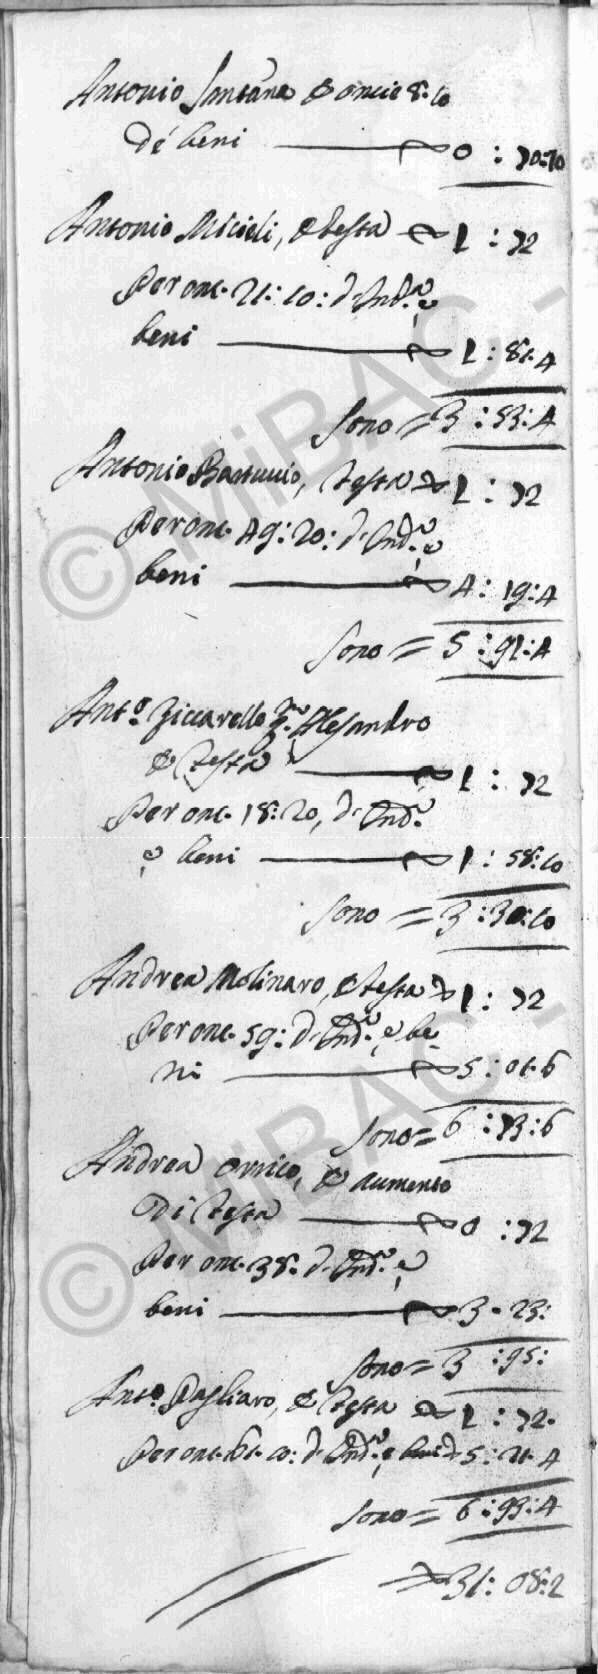 Antonio Santana p oncie 8: 10
dé beni 0 : 70:10
Antonio Micieli, p testa 1 : 72
Per onc. 21: 10: d'Ind.ª e
beni 1 : 81:4
Sono = 3 : 53:4
Antonio Bartuccio, testa 1 : 72
Per onc. 49: 20: d'Ind.ª e
beni 4 : 19:4
Sono = 5 : 91:4
Ant.º Ziccarello Alesandro
p testa 1 : 72
Per onc. 18: 20, d'Ind.ª
e beni 1 : 58:10
Sono = 3 : 30:10
Andrea Molinaro, p testa 1 : 72
Per onc. 59: d'Ind.ª e be
ni 5 : 01:6
Sono = 6 : 73:6
Andrea Orrico, p aumento
di testa 0 : 72
Per onc. 38: d'Ind.ª e
beni 3 - 23:
Sono = 3 : 95:
Ant.º Pagliaro, p testa 1 : 72.
Per onc. 61. 10: d'Ind.ª e beni 5 : 21.4
Sono = 6 : 93:4
31: 08:2
© MiBAC -
© MiBAC -